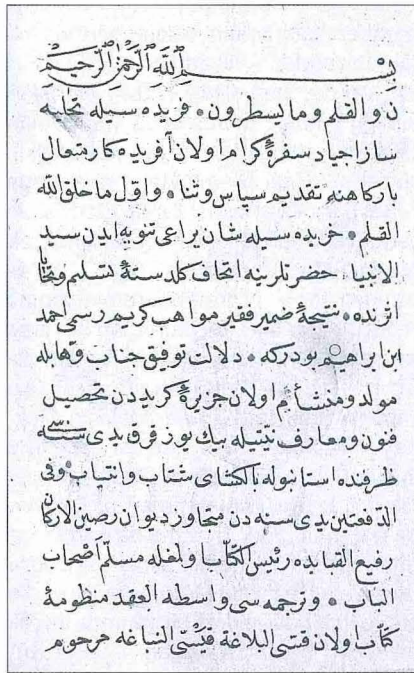 بسم الله الرحمن الرحيم
ن والقلم وما يسطرون • فريده سيله تحليه
ساز اجياد سفرهٔ كرام اولان آفريده كار متعال
باركاهنه تقديم سپاس وثنا • واوّل ما خلق الله
القلم • خريده سيله شان يراعى تنويه ايدن سيد
الانبيا حضرتلرينه اتحاف كلدستهٔ تسليم وتحايا
اثرنده • نتيجهٔ ضمير فقير مواهب كريم رسمى احمد
ابن ابراهيم بودركه • دلالت توفيق جناب وهابله
مولد ومنشأم اولان جزيرهٔ كريددن تحصيل
فنون ومعارف نيتيله بيك يوز قرق يدى سنه سى
ظرفنده استانبوله شتاب وانتياب وفى
الدفعتين يدى سنه دن متجاوز ديوان رصين الاركان
رفيع القبابده رئيس الكتاب ولغله مسلّم اصحاب
الباب • وترجمه سى واسطه العقد منظومهٔ
كتاب اولان قسّ البلاغة قيسىّ النباغه مرحوم